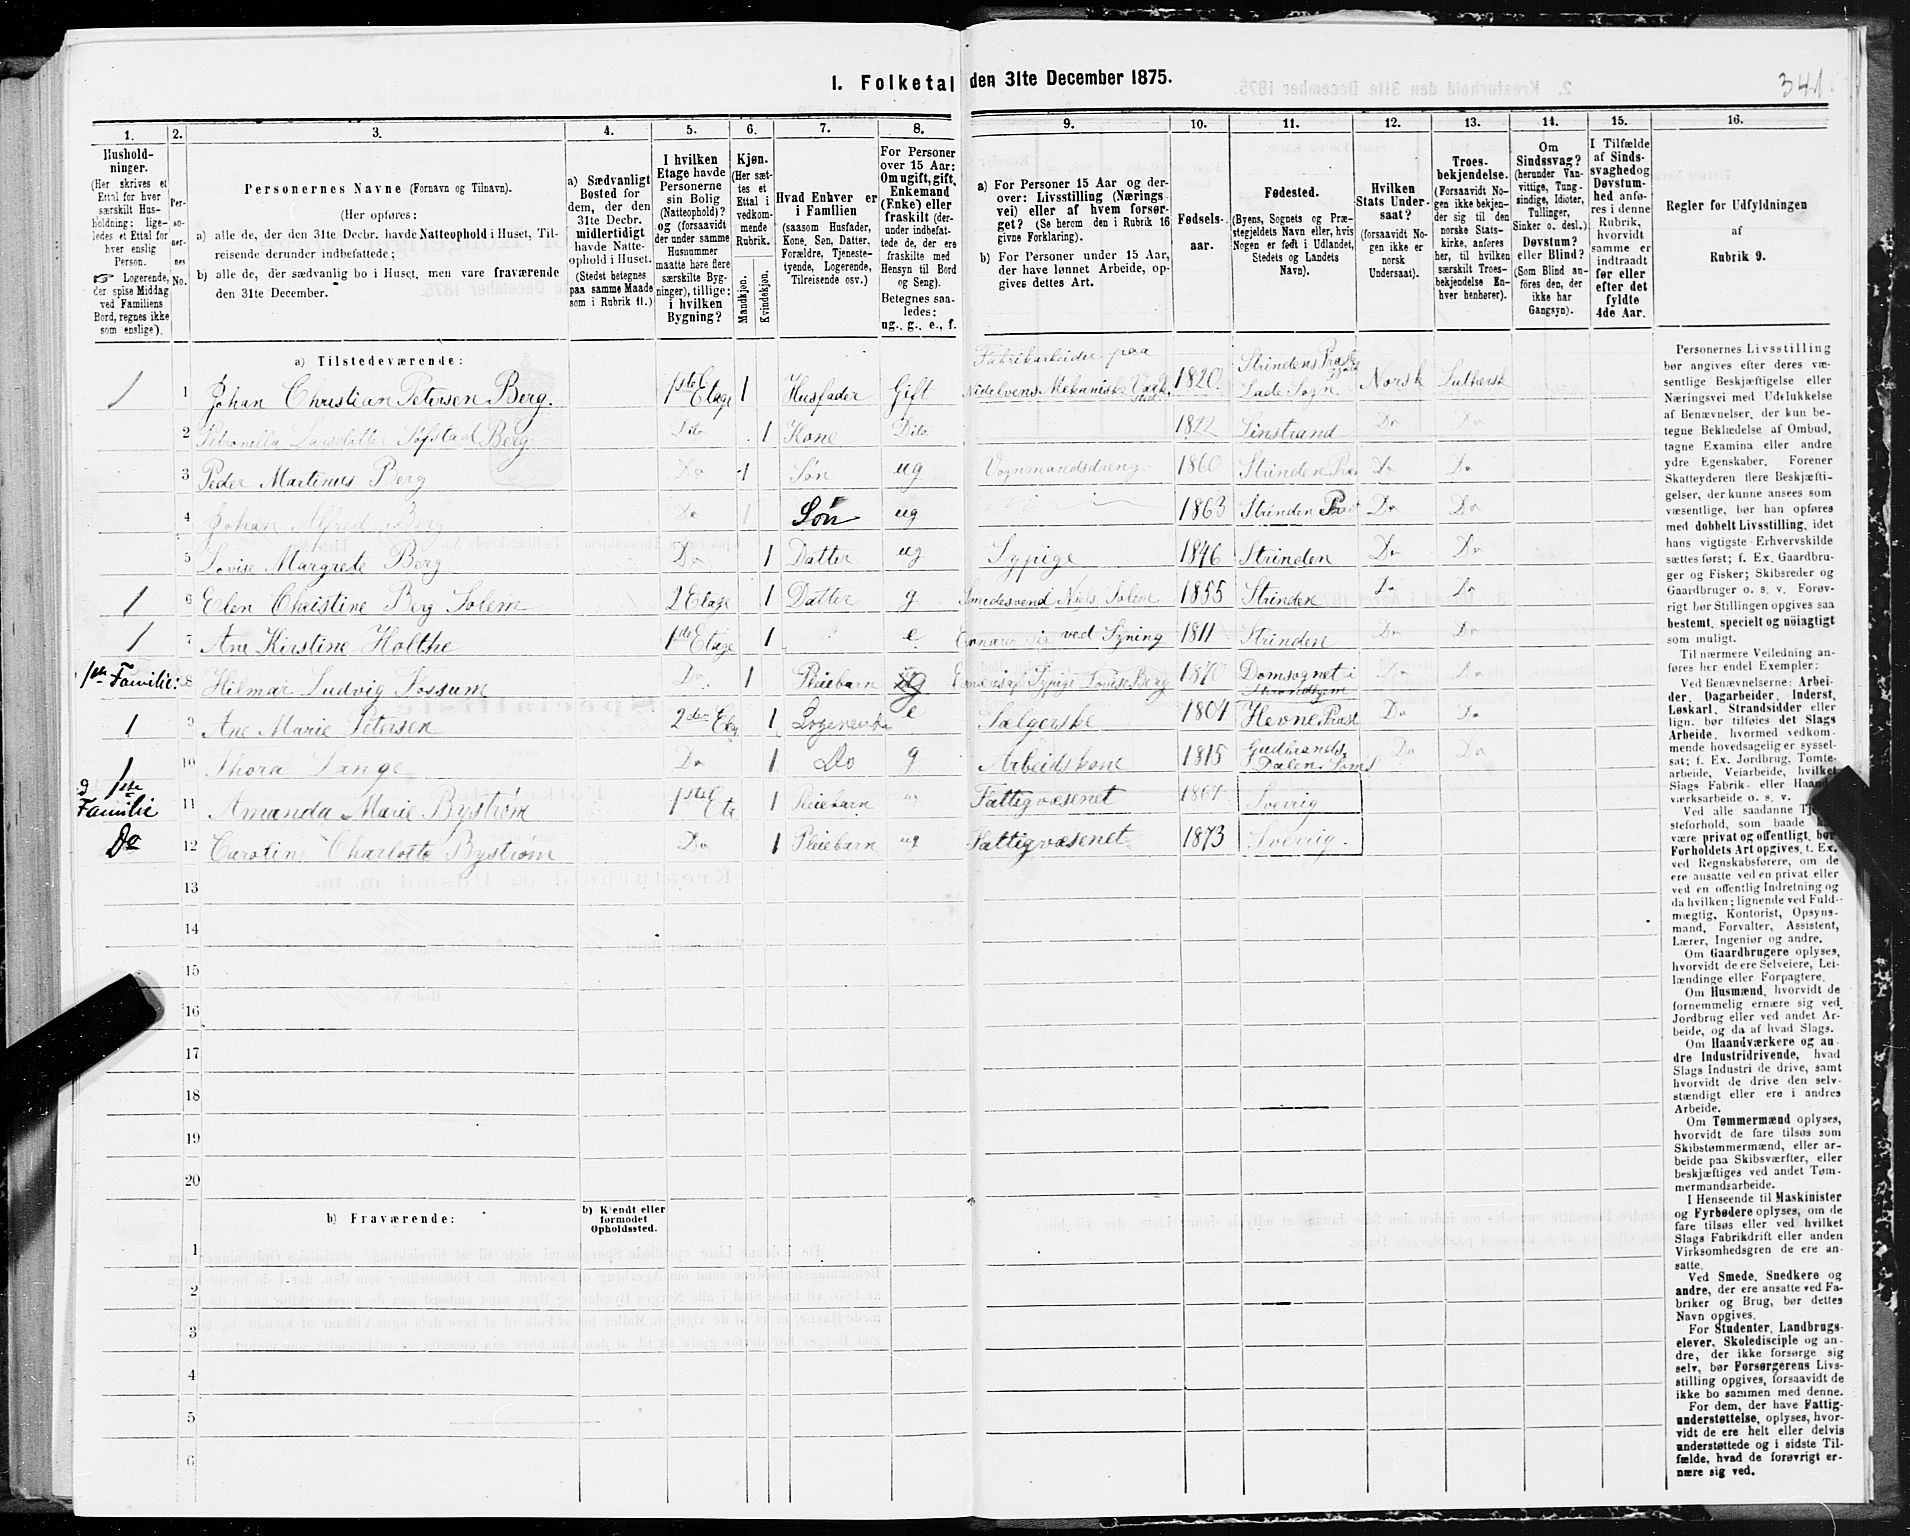 1. Folketal den 31te December 1875.
341.
1. 2. 3. 4. 5. 6. 7. 8. 9. 10. 11. 12. 13. 14. 15. 16.
Hushold-
ninger.
(Her skrives et
Ettal for hver
særskilt Hus-
holdning; lige-
ledes et Ettal for
hver enslig
Person.
☞ Logerende,
der spise Middag
ved Familiens
Bord, regnes ikke
som enslige).
Per-
so-
ner-
nes
No.
Personernes Navne (Fornavn og Tilnavn).
(Her opføres:
a) alle de, der den 31te Decbr. havde Natteophold i Huset, Til-
reisende derunder indbefattede;
b) alle de, der sædvanlig bo i Huset, men vare fraværende
den 31te December.
a) Sædvanligt
Bosted for
dem, der den
31te Decbr.
midlertidigt
havde Natte-
ophold i Huset.
(Stedet betegnes
paa samme Maade
som i Rubrik 11.)
I hvilken
Etage havde
Personerne
sin Bolig
(Natteophold)?
og (forsaavidt
der under samme
Husnummer
maatte høre flere
særskilte Byg-
ninger), tillige:
i hvilken
Bygning?
Kjøn.
(Her sæt-
tes et
Ettal i
vedkom-
mende
Rubrik.
Mandkjøn.
Kvindekjøn.
Hvad Enhver er
i Familien
(saasom Husfader,
Kone, Søn, Datter,
Forældre, Tjeneste-
tyende, Logerende,
Tilreisende osv.)
For Personer
over 15 Aar:
Om ugift, gift,
Enkemand
(Enke) eller
fraskilt (der-
under indbefat-
tede de, der ere
fraskilte med
Hensyn til Bord
og Seng).
Betegnes saa-
ledes:
ug., g., e., f.
a) For Personer 15 Aar og der-
over: Livsstilling (Nærings-
vei) eller af hvem forsør-
get? (Se herom den i Rubrik 16
givne Forklaring).
b) For Personer under 15 Aar,
der have lønnet Arbeide, op-
gives dettes Art.
Fødsels-
aar.
Fødested.
(Byens, Sognets og Præ-
stegjeldets Navn eller, hvis
Nogen er født i Udlandet,
Stedets og Landets
Navn).
Hvilken
Stats Under-
saat?
(forsaavidt No-
gen ikke er
norsk
Undersaat).
Troes-
bekjendelse.
(Forsaavidt No-
gen ikke bekjen-
der sig til den
norske Stats-
kirke, anføres
her, til hvilken
særskilt Troes-
bekjendelse En-
hver henhører).
Om
Sindssvag?
(herunder Van-
vittige, Tung-
sindige, Idioter,
Tullinger,
Sinker o. desl.)
Døvstum?
eller Blind?
(Som Blind an-
føres den, der
ikke har
Gangsyn).
I Tilfælde
af Sinds-
svaghed og
Døvstum-
hed anfø-
res i denne
Rubrik,
hvorvidt
samme er
indtraadt
før eller
efter det
fyldte
4de Aar.
Regler for Udfyldningen
af
Rubrik 9.
a) Tilstedeværende:
1 1 Johan Christian Petersen Berg. 1ste Etage 1 Husfader Gift Fabrikarbeider paa Nidelvens Mekaniske 1820. Strindens Lade Sogn. Norsk Luthersk
2 Petronella Larsdatter Berg Dito 1 Kone Dito 1822 Linstrand Do Do
3 Peder Martinus Berg Do 1 Søn ug Vognmandsdreng 1860 Strinden Do Do
4 Johan Alfred Berg Do 1 Søn ug 1863 Strinden Do Do
5 Lovise Margrete Berg Do 1 Datter ug Sypige 1846 Strinden Do Do
1 6 Elen Christine Berg Solem 2 Etage 1 Datter g Smedesvend Niels Solem 1855 Strinden Do Do
1 7 Ane Kirstine Holthe 1ste Etage 1 e Ernærer sig ved Syning 1811 Strinden Do Do
1ste Familie: 8 Hilmar Ludvig Fossum Do 1 Pleiebarn Sypige Lovise Berg 1870 Domsognet i Throndhjem Do Do
1 9 Ane Marie Petersen 2den Eta 1 Logerende e Sælgerske 1804 Hevne Præst Do Do
1 10 Thora Lange Do 1 Do g Arbeidskone 1815 Gudbrands Dalen Do Do
1ste Familie 11 Amanda Marie Bystrøm 1ste Eta 1 Pleiebarn ug Fattigvæsenet 1867 Sverrig
Do 12 Carotine Charlotte Bystrøm Do 1 Pleiebarn ug Fattigvæsenet 1873 Sverrig.
13
14
15
16
17
18
19
20
b) Fraværende:
b) Kjendt eller
formodet
Opholdssted.
1
2
3
4
5
6
Personernes Livsstilling
bør angives efter deres væ-
sentlige Beskjæftigelse eller
Næringsvei med Udelukkelse
af Benævnelser, der kun be-
tegne Beklædelse af Ombud,
tagne Examina eller andre
ydre Egenskaber. Forener
Skatteyderen flere Beskjæfti-
gelser, der kunne ansees som
væsentlige, bør han opføres
med dobbelt Livsstilling, idet
hans vigtigste Erhvervskilde
sættes først; f. Ex. Gaardbru-
ger og Fisker; Skibsreder og
Gaardbruger o. s. v. Forøv-
rigt bør Stillingen opgives saa
bestemt, specielt og nøiagtigt
som muligt.
Til nærmere Veiledning an-
føres her endel Exempler:
Ved Benævnelserne: Arbei-
der, Dagarbeider, Inderst,
Løskarl, Strandsidder eller
lign. bør tilføies det Slags
Arbeide, hvormed vedkom-
mende hovedsagelig er syssel-
sat; f. Ex. Jordbrug, Tomte-
arbeide, Veiarbeide, hvilket
Slags Fabrik- eller Haand-
værksarbeide o. s. v.
Ved alle saadanne Tje-
steforhold, som baade
være privat og offentligt, bør
Forholdets Art opgives, f. Ex.
ved Regnskabsførere, om de
ere ansatte ved en privat eller
ved en offentlig Indretning og
da hvilken; lignende ved Fuld-
mægtig, Kontorist, Opsyns-
mand, Forvalter, Assistent,
Lærer, Ingeniør og andre.
Om Gaardbrugere oplyses,
hvorvidt de ere Selveiere, Lei-
lændinge eller Forpagtere.
Om Husmænd, hvorvidt de
fornemmelig ernære sig ved
Jordbrug eller ved andet Ar-
beide, og da af hvad Slags.
Om Haandværkere og an-
dre Industridrivende, hvad
Slags Industri de drive, samt
hvorvidt de drive den selv-
stændigt eller ere i andres
Arbeide.
Om Tømmermænd oplyses,
hvorvidt de fare tilsøs som
Skibstømmermænd, eller ar-
beide paa Skibsværfter, eller
beskjæftiges ved andet Tøm-
mermandsarbeide.
I Henseende til Maskinister
og Fyrbødere oplyses, om de
fare tilsøs eller ved hvilket
Slags Fabrikdrift eller anden
Virksomhedsgren de ere an-
satte.
Ved Smede, Snedkere og
andre, der ere ansatte ved Fa-
briker og Brug, bør dettes
Navn opgives.
For Studenter, Landbrugs-
elever, Skoledisciple og an-
dre, der ikke forsørge sig
selv, bør Forsørgerens Livs-
stilling opgives, forsaavidt de
ikke bo sammen med denne.
For dem, der have Fattig-
understøttelse, oplyses, hvor-
vidt de ere helt eller delvis
understøttede og i sidste Til-
fælde, hvad de forøvrigt er-
nære sig ved.